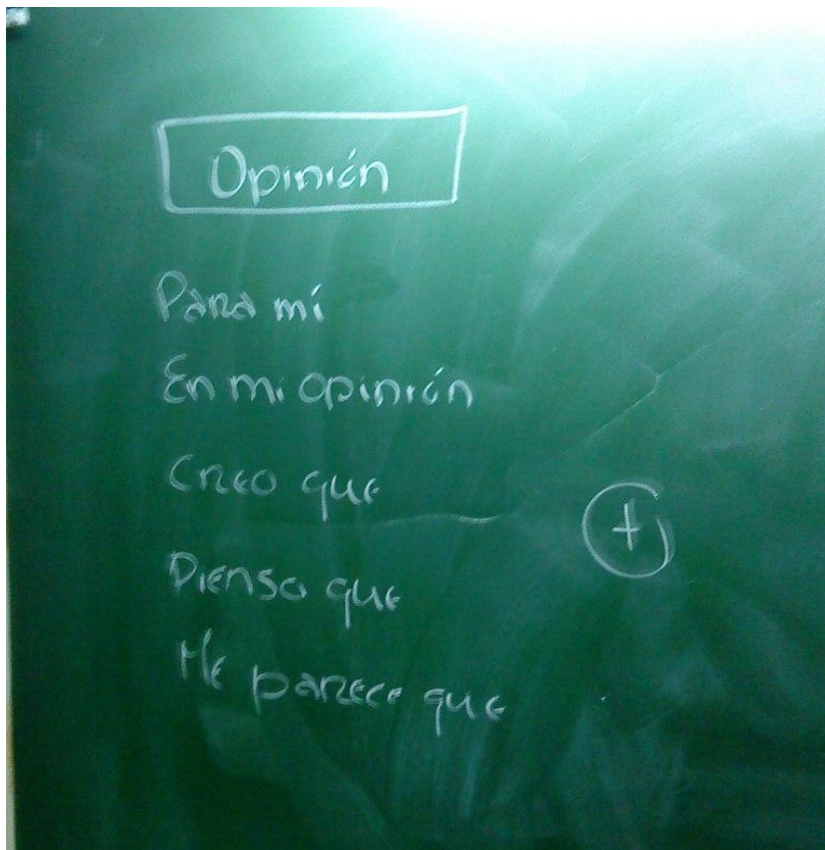 Opinión
Para mí
En mi opinión
Creo que
+
Pienso que
Me parece que